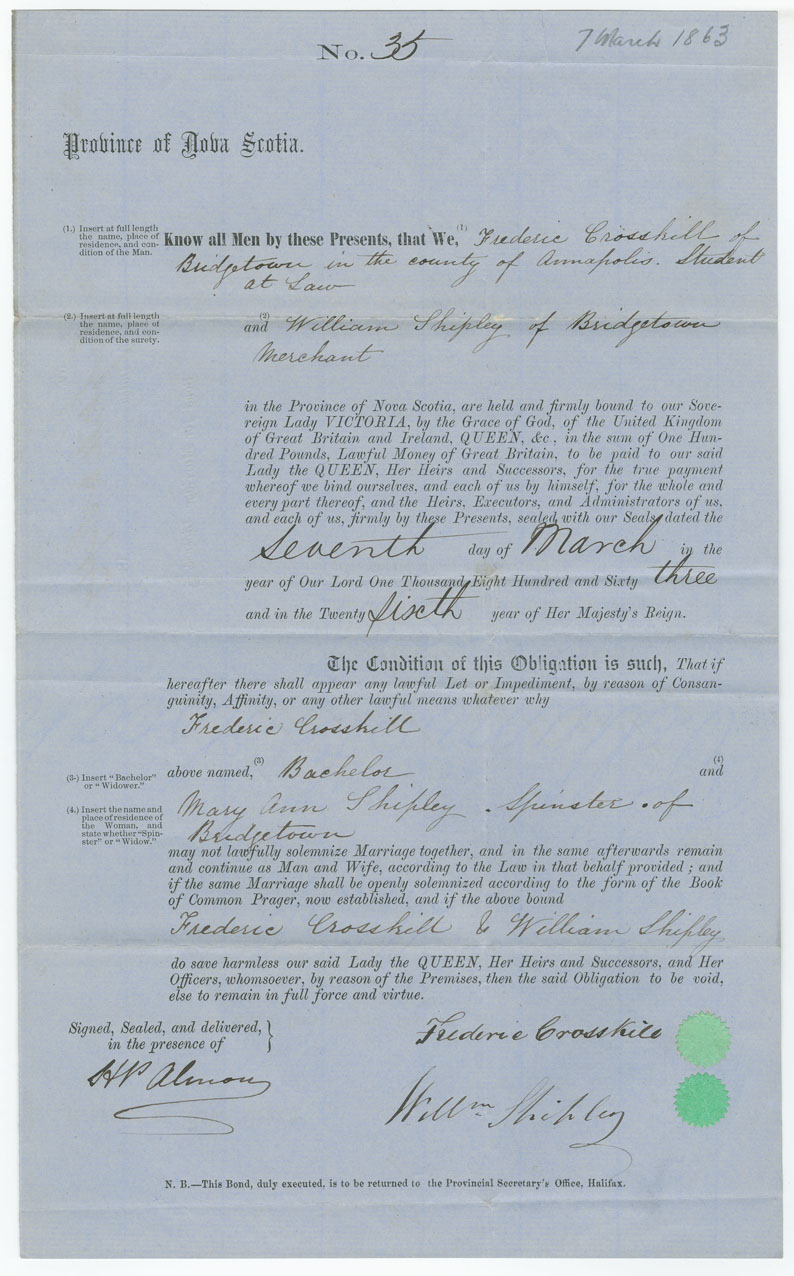 No. 35
7 March 1863
Province of Nova Scotia.
(1.) Insert at full length
the name, place of
residence, and con-
dition of the Man.
Know all Men by these Presents, that We,(1) Frederic Crosskill of
Bridgetown in the county of Annapolis. Student
at Law
(2.) Insert at full length
the name, place of
residence, and con-
dition of the surety.
(2)
and William Shipley of Bridgetown
Merchant
in the Province of Nova Scotia, are held and firmly bound to our Sove-
reign Lady VICTORIA, by the Grace of God, of the United Kingdom
of Great Britain and Ireland, QUEEN, &c., in the sum of One Hun-
dred Pounds, Lawful Money of Great Britain, to be paid to our said
Lady the QUEEN, Her Heirs and Successors, for the true payment
whereof we bind ourselves, and each of us by himself, for the whole and
every part thereof, and the Heirs, Executors, and Administrators of us,
and each of us, firmly by these Presents, sealed with our Seals, dated the
Seventh day of March in the
year of Our Lord One Thousand Eight Hundred and Sixty three
and in the Twenty Sixth year of Her Majesty's Reign.
The Condition of this Obligation is such, That if
hereafter there shall appear any lawful Let or Impediment, by reason of Consan-
guinity, Affinity, or any other lawful means whatever why
Frederic Crosskill
(3.) Insert "Bachelor"
or "Widower."
above named,(3) Bachelor and (4)
(4.) Insert the name and
place of residence of
the Woman, and
state whether "Spin-
ster" or "Widow."
Mary Ann Shipley . Spinster . of
Bridgetown
may not lawfully solemnize Marriage together, and in the same afterwards remain
and continue as Man and Wife, according to the Law in that behalf provided ; and
if the same Marriage shall be openly solemnized according to the form of the Book
of Common Prager, now established, and if the above bound
Frederic Crosskill & William Shipley
do save harmless our said Lady the QUEEN, Her Heirs and Successors, and Her
Officers, whomsoever, by reason of the Premises, then the said Obligation to be void,
else to remain in full force and virtue.
Signed, Sealed, and delivered,
in the presence of }
Frederic Crosskill
HP Almon
Willm Shipley
N. B.—This Bond, duly executed, is to be returned to the Provincial Secretary's Office, Halifax.